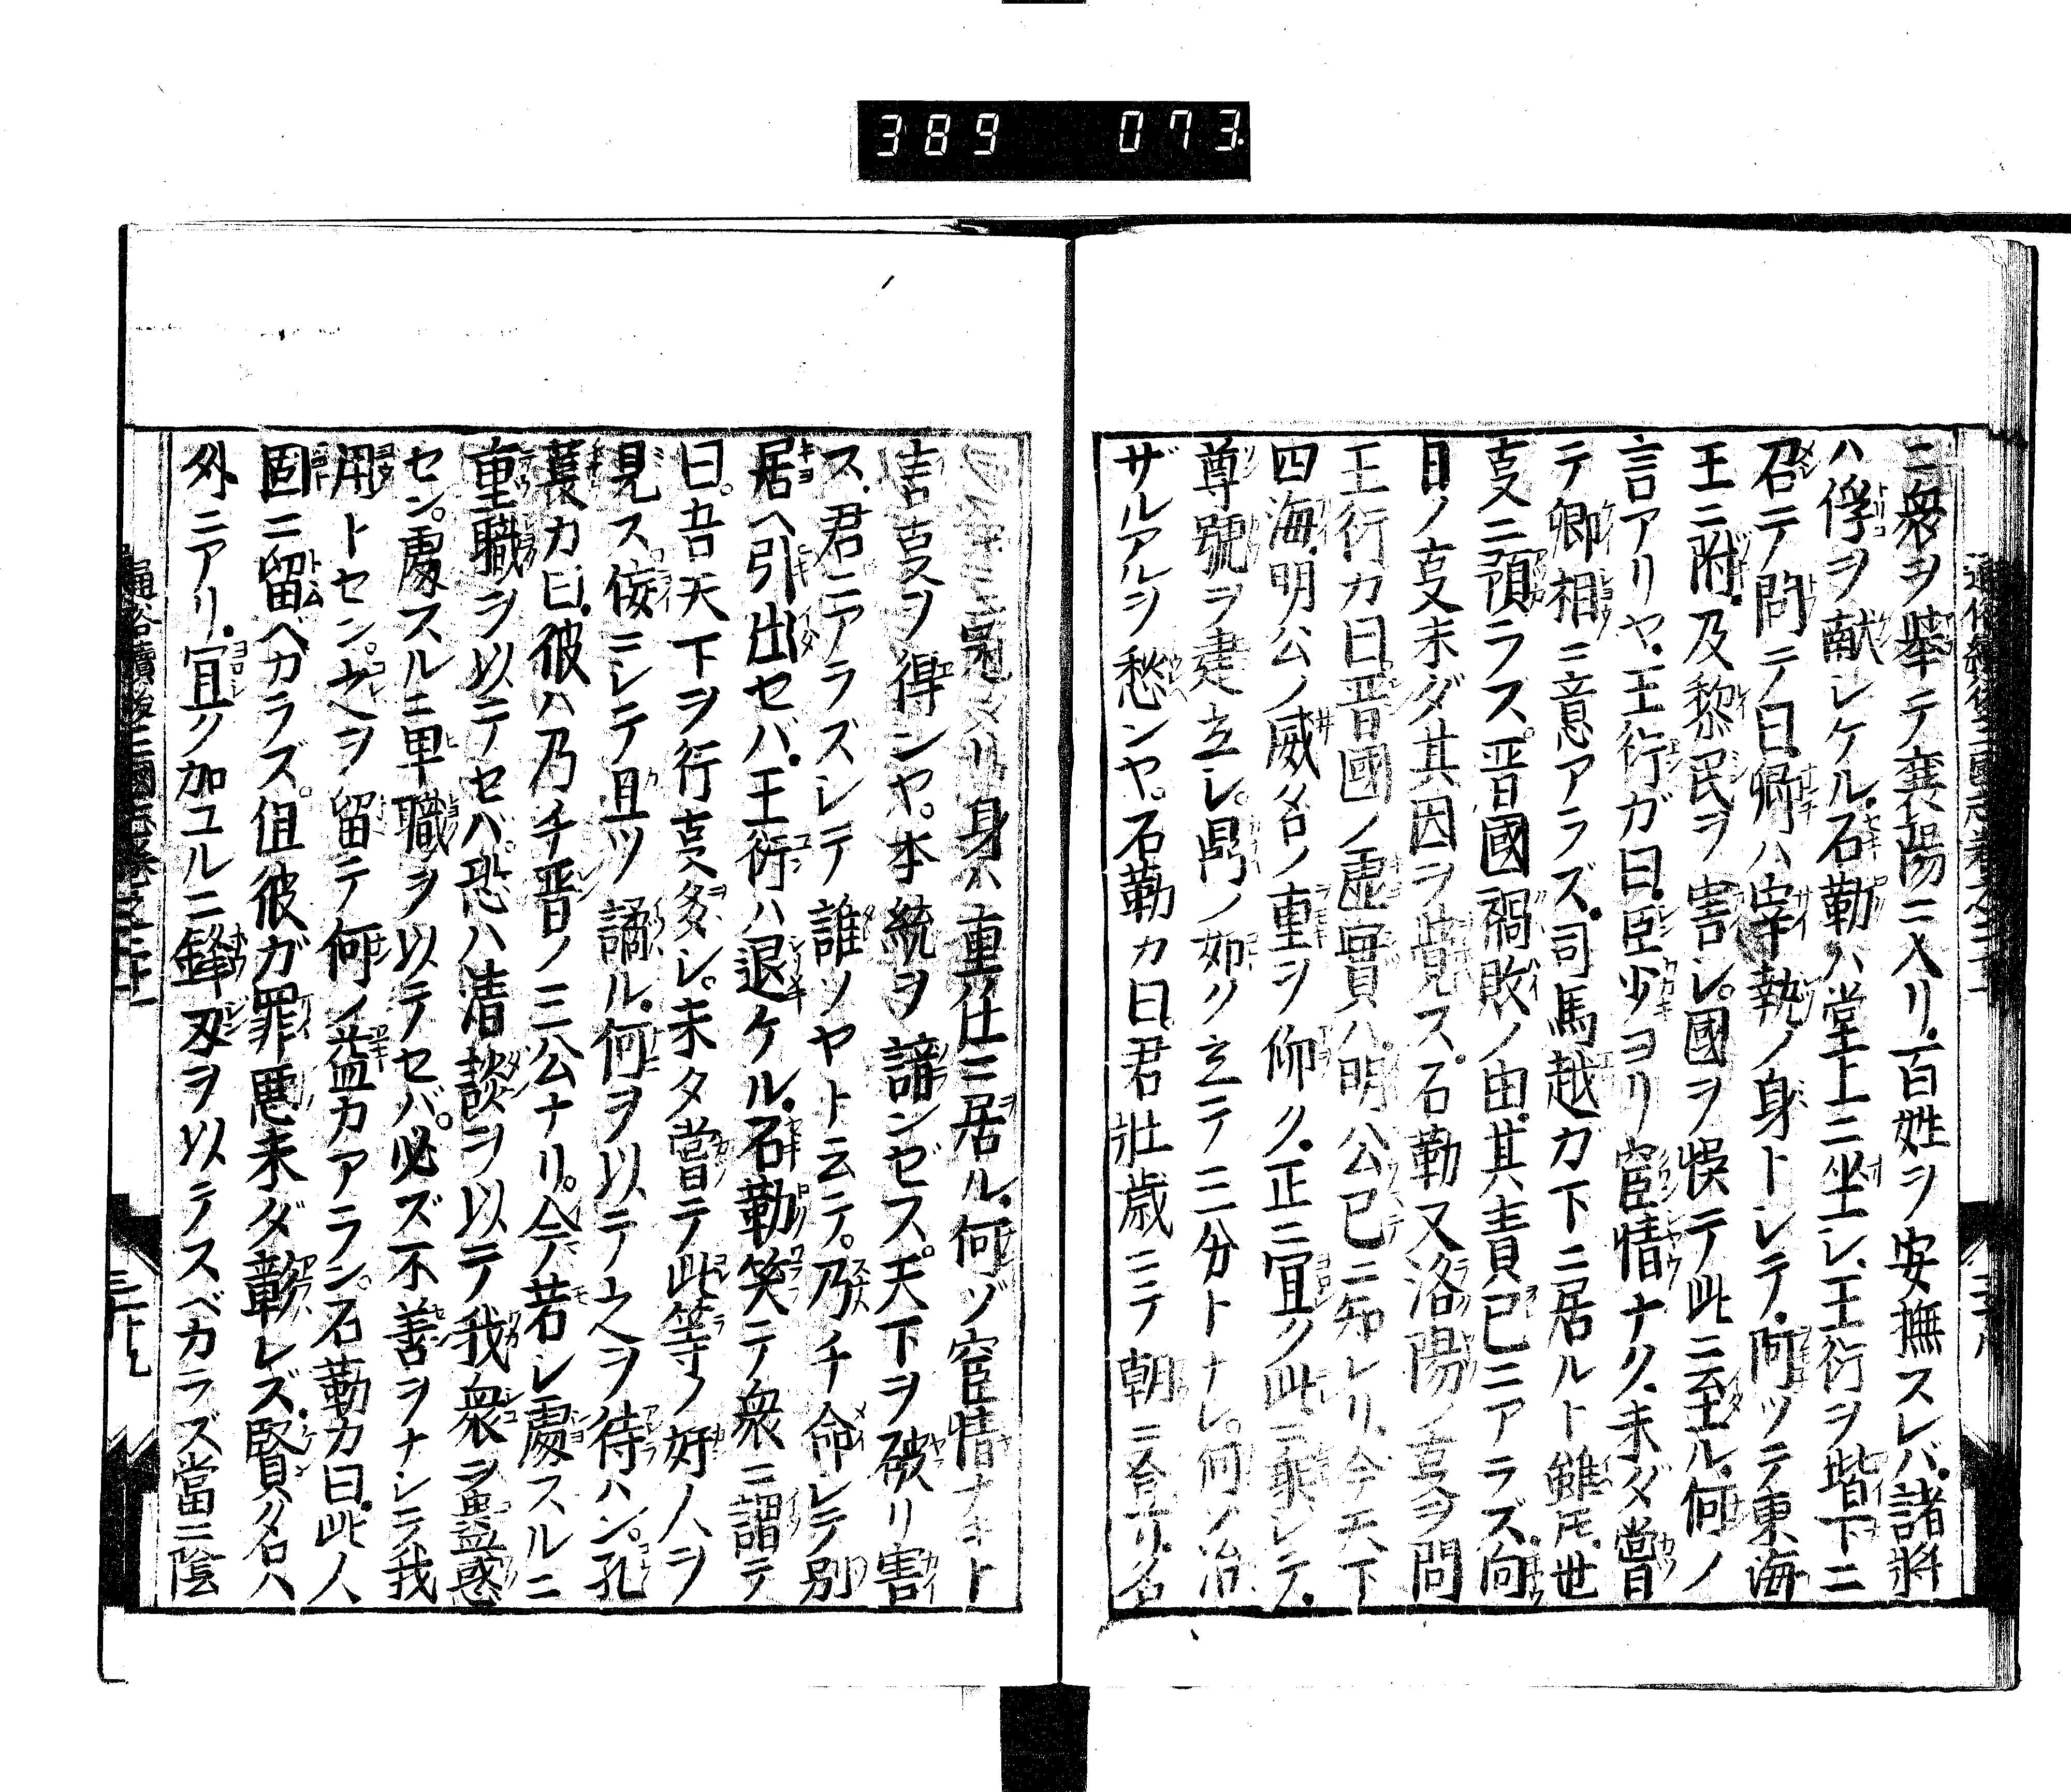 389 073
ニ衆ヲ举テ襄陽ニ入リ.百姓ヲ安撫スレバ.諸將
ハ俘ヲ献シケル.石勒ハ堂上ニ坐シ.王衍ヲ堦下ニ
召テ問テ曰.卿ハ宰執ノ身トシテ.阿ツテ東海
王ニ附.及黎民ヲ害シ.國ヲ悞テ此ニ至ル.何ノ
言アリヤ.王衍ガ曰.臣少ヨリ宦情ナク.未ダ嘗
テ卿相ニ意アラズ.司馬越カ下ニ居ルト雖𪜈.世
㕝ニ預ラス。晋國禍敗ノ由.其責已ニアラズ.向
日ノ㕝未ダ其因ヲ覚ス.石勒又洛陽ノ㕝ヲ問
王衍カ曰晋國ノ虚實ハ明公已ニ知レリ.今天下
四海.明公ノ威名ノ重ヲ仰ク.正ニ宜ク此ニ乘シテ.
尊號ヲ建立シ。鼎ノ如ク立テ三分トナレ。何ソ治
ザルアルヲ愁ンヤ。石勒カ曰.君壮歳ニテ朝ニ登リ.名
ニ冠タリ身ハ重任ニ居ル.何ゾ宦情ナキト
言㕝ヲ得ンヤ。本統ヲ諳ンゼス。天下ヲ破リ害
ス.君ニアラズシテ誰ソヤト云テ。乃チ命シテ別
居ヘ引出セバ.王衍ハ退ケル.石勒笑テ衆ニ謂テ
曰。吾天下ヲ行㕝多シ。未タ嘗テ此等ノ好人ヲ
見ス侫ニシテ且ツ譎ル.何ヲ以テ之ヲ待ハン。孔
萇カ曰.彼ハ乃チ晋ノ三公ナリ。今若シ處スルニ
重職ヲ以テセバ.恐ハ清談ヲ以テ我衆ヲ蠱惑
セン。處スルニ卑職ヲ以テセバ。必ズ不善ヲナシテ我
用トセン。之ヲ留テ何ノ益カアラン。石勒カ曰.此人
固ニ留ベカラズ。但彼ガ罪悪未ダ彰レズ.賢名ハ
外ニアリ.宜ク加ユルニ鋒刃ヲ以テスベカラズ當ニ陰
通俗續後三國志卷之二十一
三十九